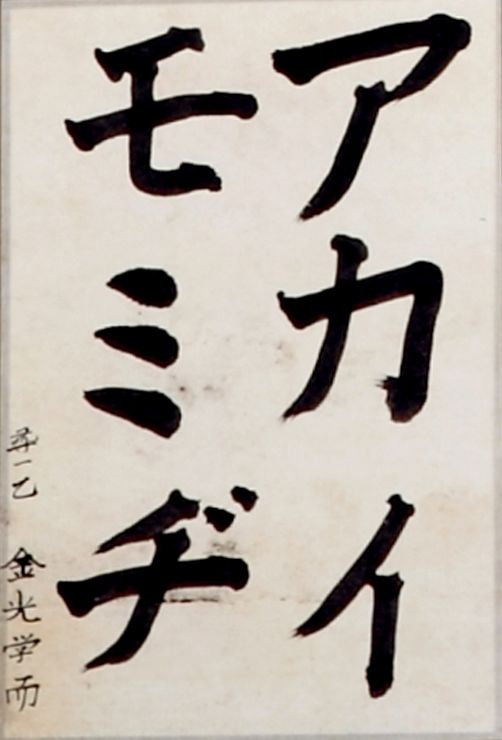 アカイ
モミヂ
尋一乙 金光学而